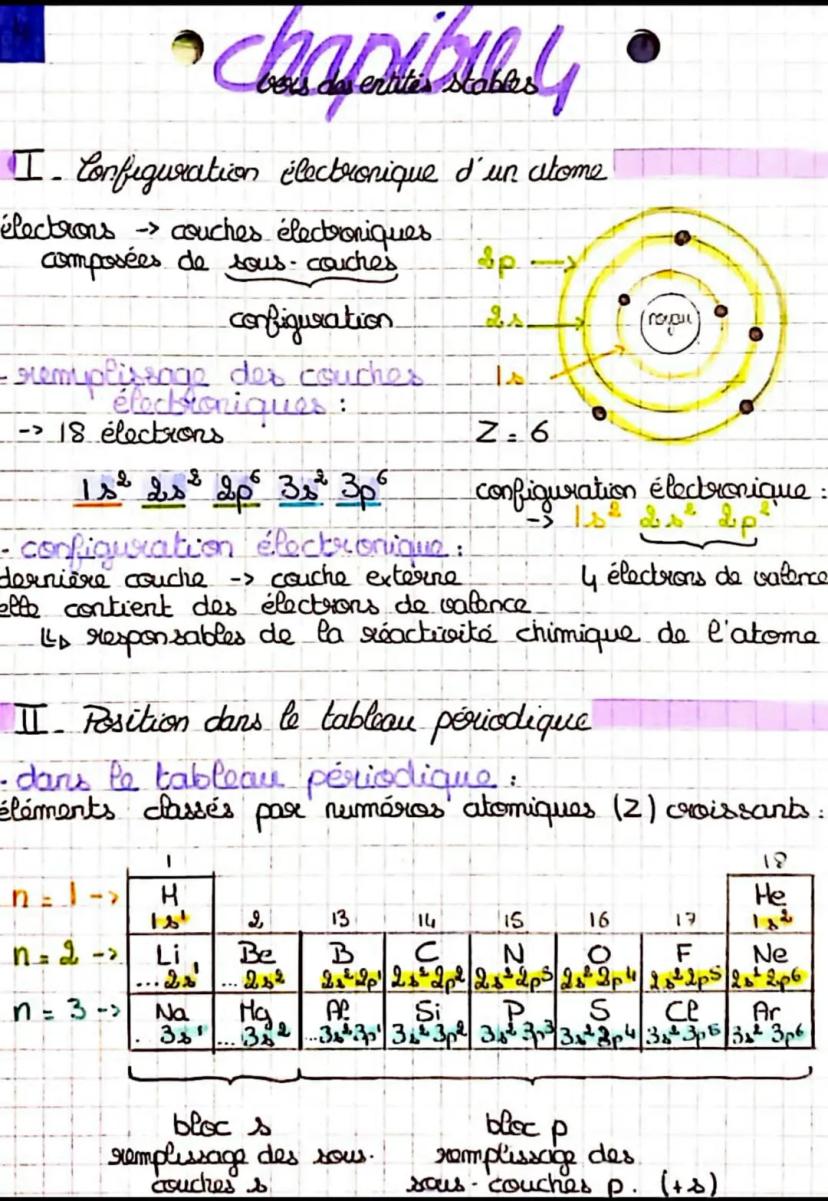 chapitre 4
vers des entités stables
I - Configuration électronique d'un atome
électrons -> couches électroniques
composées de sous-couches
configuration
2p
2s
1s
noyau
- remplissage des couches
électroniques :
-> 18 électrons
Z = 6
1s² 2s² 2p⁶ 3s² 3p⁶
configuration électronique :
-> 1s² 2s² 2p²
4 électrons de valence
- configuration électronique :
dernière couche -> couche externe
elle contient des électrons de valence
↳ responsables de la réactivité chimique de l'atome
II - Position dans le tableau périodique
- dans le tableau périodique :
éléments classés par numéros atomiques (Z) croissants :
1 18
n = 1 -> H He
1s¹ 2 13 14 15 16 17 1s²
n = 2 -> Li Be B C N O F Ne
... 2s¹ ... 2s² 2s² 2p¹ 2s² 2p² 2s² 2p³ 2s² 2p⁴ 2s² 2p⁵ 2s² 2p⁶
n = 3 -> Na Mg Al Si P S Cl Ar
. 3s¹ ... 3s² ...3s² 3p¹ 3s² 3p² 3s² 3p³ 3s² 3p⁴ 3s² 3p⁵ 3s² 3p⁶
bloc s bloc p
remplissage des sous- remplissage des
couches s sous-couches p. (+s)